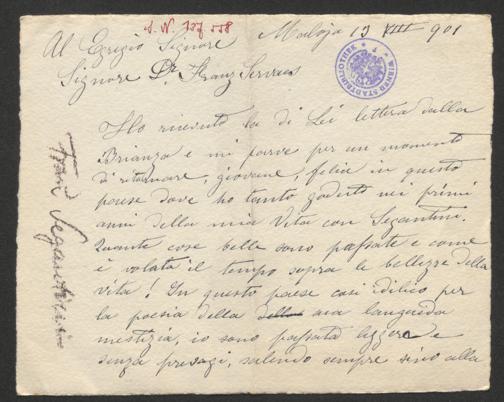 J. N. 757 558
Maloja 13 VIII 901
Al Egregio Signore
Signore Dr. Franz Servaes
WIENER STADTBIBLIOTHEK
Ho ricevuto la di Lei lettera dalla
Brianza e mi parve per un momento
di ritornare, giovane, felice in questo
paese dove ho tanto goduto nei primi
anni della mia Vita con Segantini.
Quante cose belle sono passate e come
è volata il tempo sopra le bellezze della
vita! In questo paese così idilico per
la poesia della sua languida
mestizia, io sono passata leggera e
senza presagi, salendo sempre sino alla
Segantini